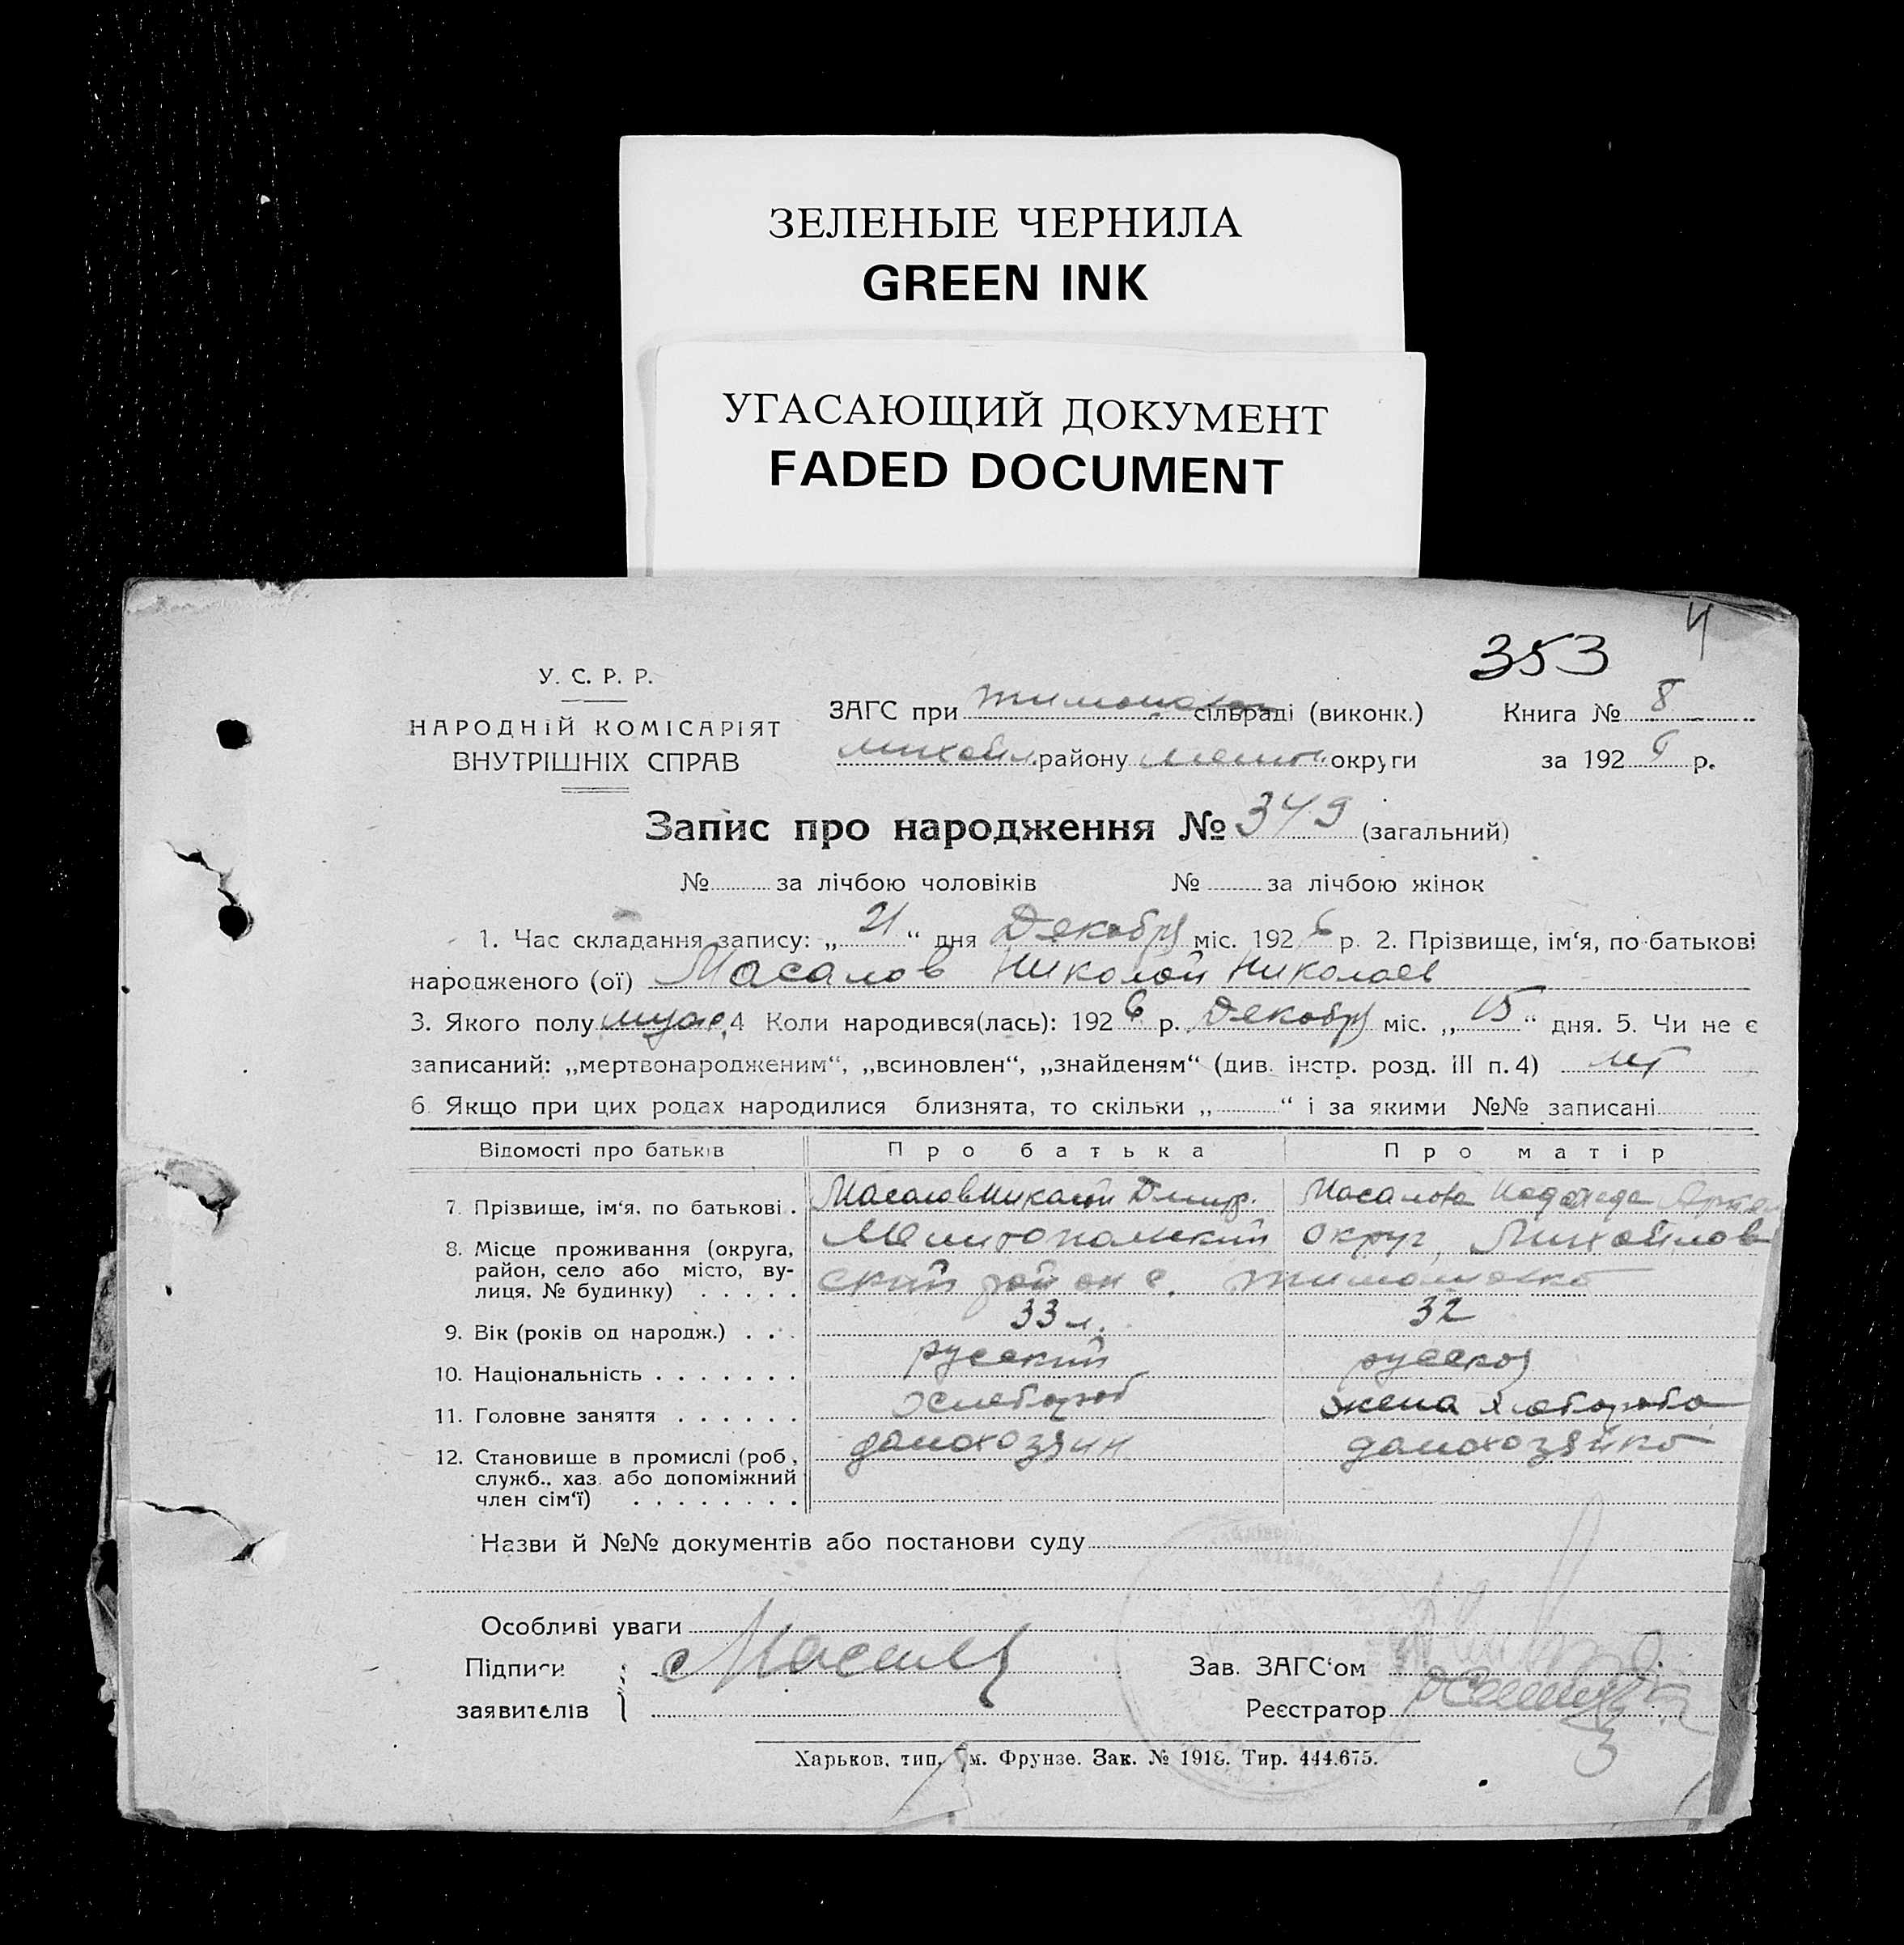 ЗЕЛЕНЫЕ ЧЕРНИЛА
GREEN INK
УГАСАЮЩИЙ ДОКУМЕНТ
FADED DOCUMENT
353
У. С. Р. Р.
НАРОДНІЙ КОМІСАРІЯТ
ВНУТРІШНІХ СПРАВ
ЗАГС при сільраді (виконк.)
Михайл. району Мелит. округи
Книга № 8
за 1926 р.
Запис про народження № 349 (загальний)
№ за лічбою чоловіків № за лічбою жінок
1. Час складання запису: „21“ дня Декабря міс. 1926 р. 2. Прізвище, ім‘я, по-батькові
народженого (ої) Масалов Николай Николаев
3. Якого полу муж. 4 Коли народився(лась): 1926 р. Декабря міс. „15“ дня. 5. Чи не є
записаний: „мертвонародженим“, „всиновлен“, „знайденям“ (див. інстр. розд. III п. 4)
6. Якщо при цих родах народилися близнята, то скільки „ “ і за якими №№ записані
Відомості про батьків Про батька Про матір
7. Прізвище, ім‘я, по батькові . Масалов Николай Дмитр. Масалова Надежда
8. Місце проживання (округа, район, село або місто, вулиця, № будинку) Мелитопольский округ, Михайловский район с. Тимошовка
9. Вік (років од народж.) 33 л. 32
10. Національність русский русская
11. Головне заняття хлебороб жена хлебороба
12. Становище в промислі (роб., служб., хаз. або допоміжний член сім‘ї) домохозяин домохозяйка
Назви й №№ документів або постанови суду
Особливі уваги
Підписи заявителів
Зав. ЗАГС‘ом
Реєстратор
Харьков, тип. Им. Фрунзе. Зак. № 1918. Тир. 444.675.